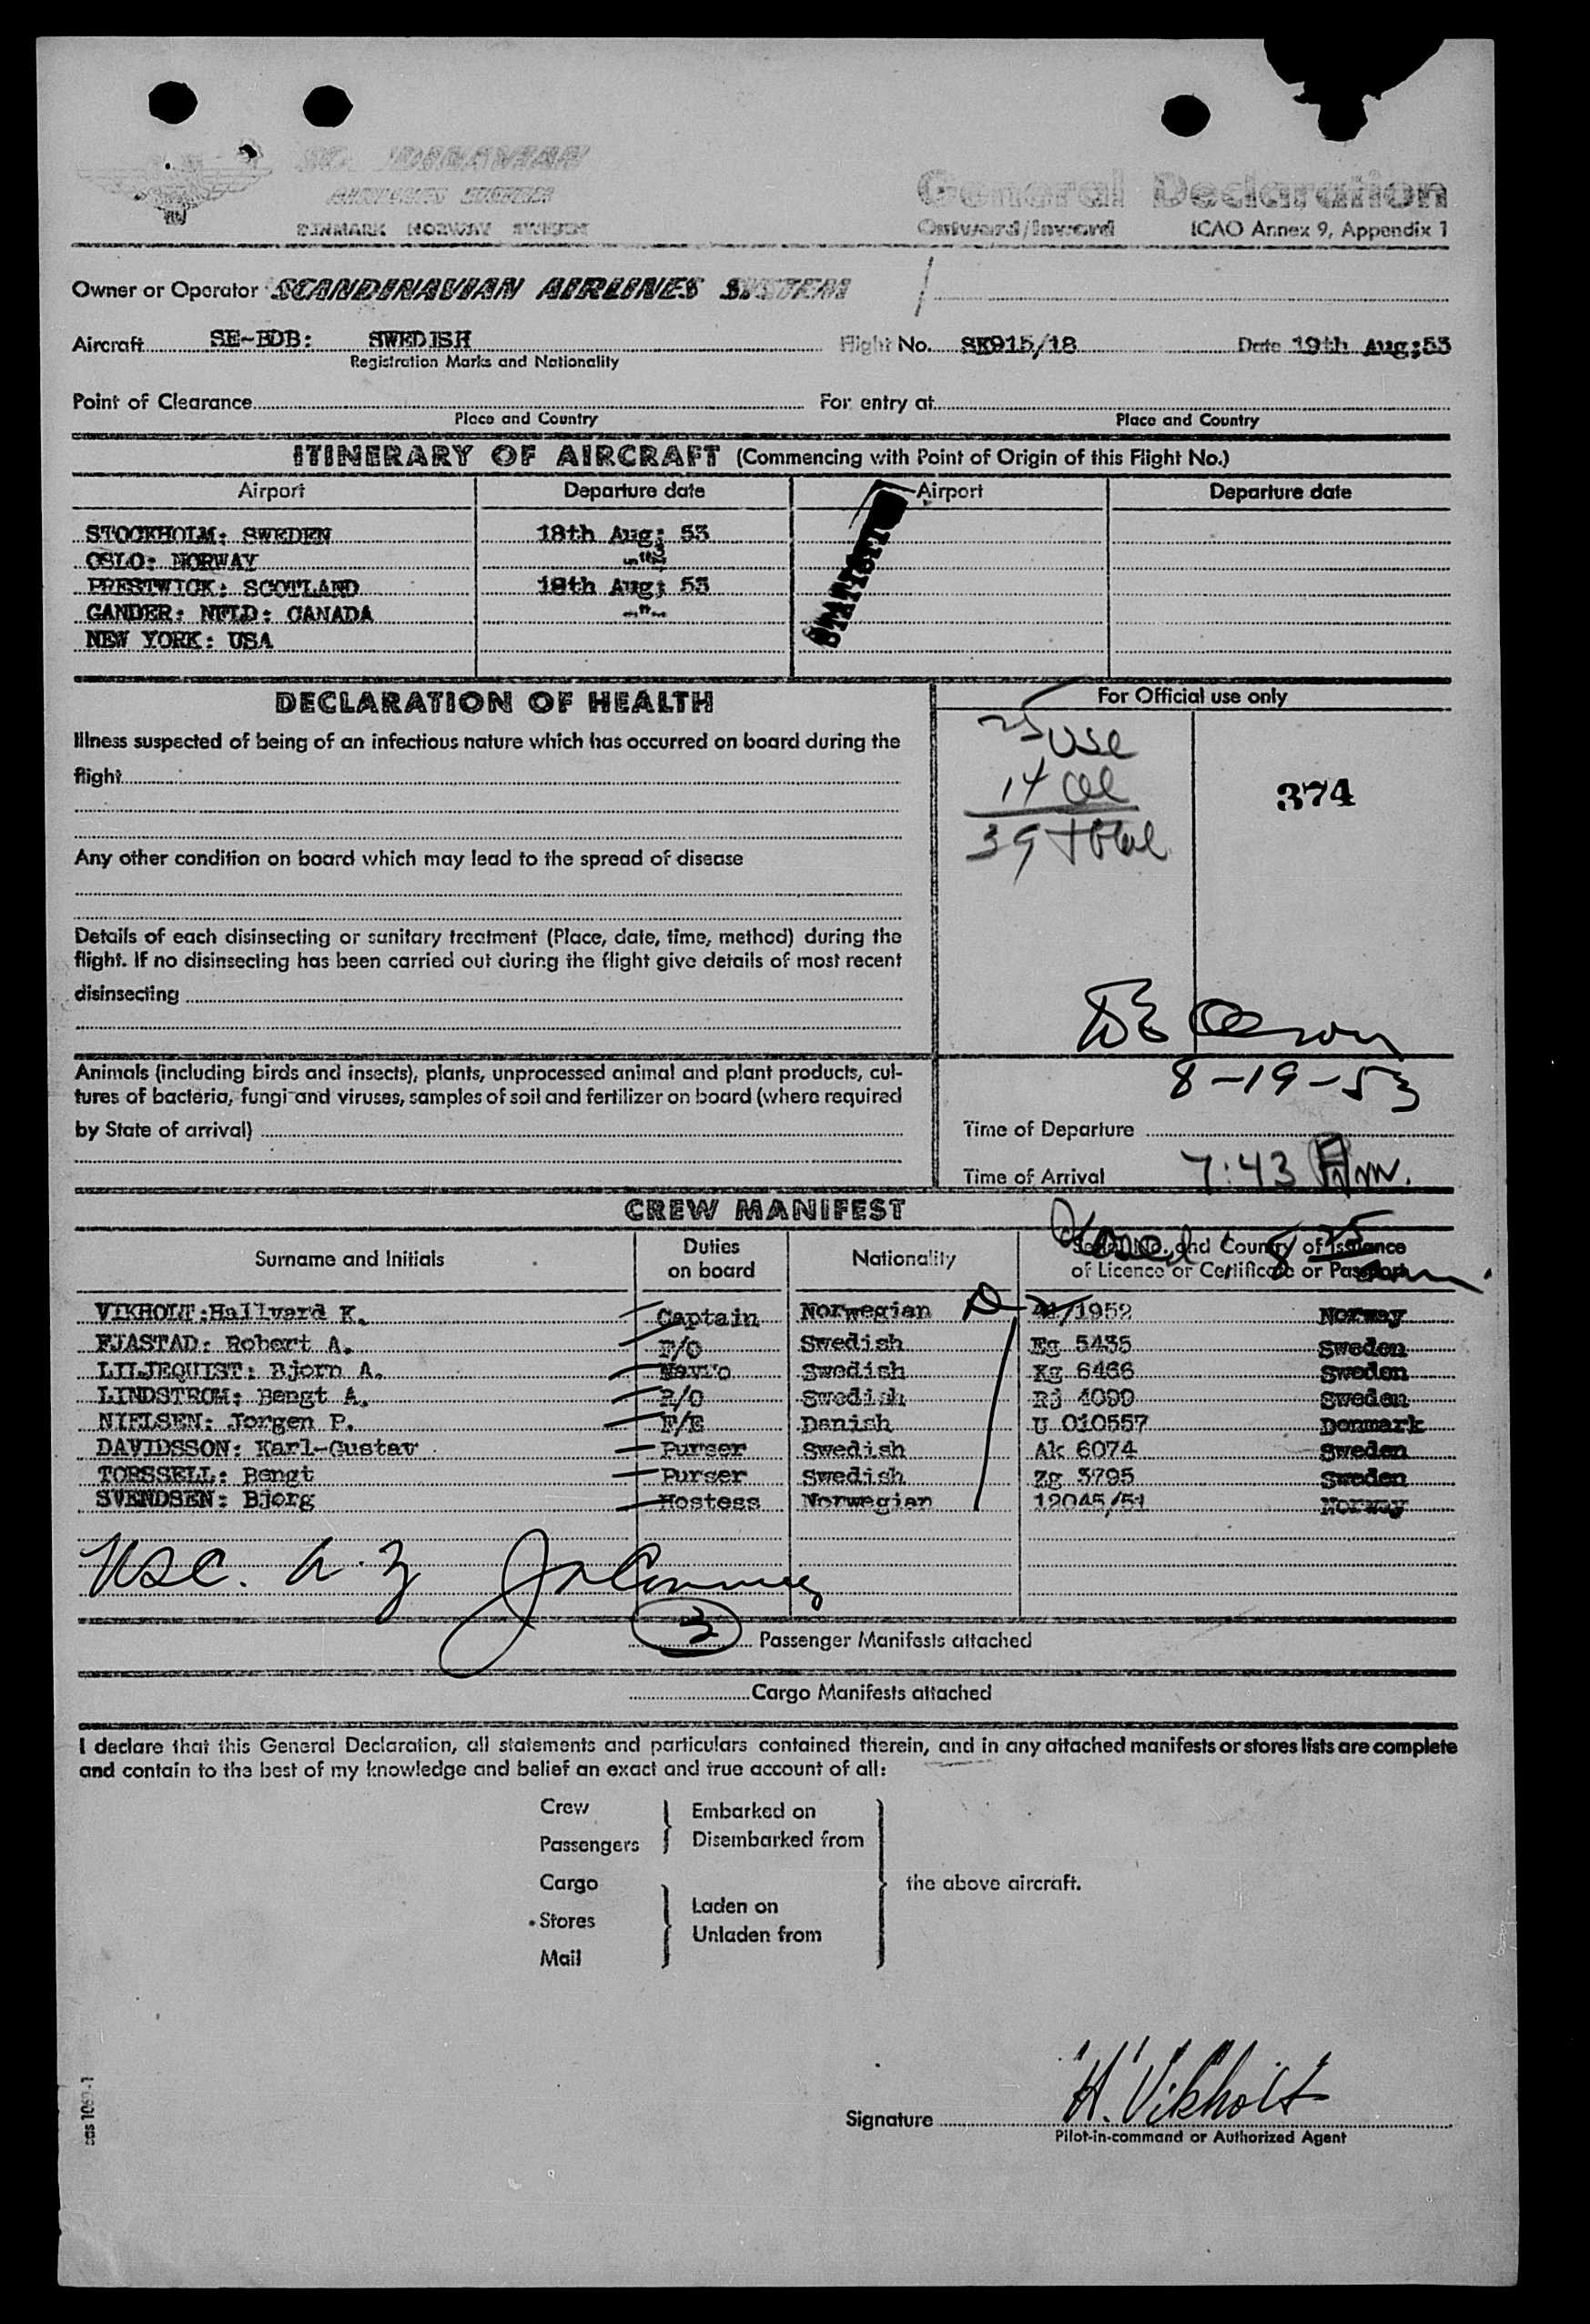 SCANDINAVIAN
AIRLINES SYSTEM
DENMARK NORWAY SWEDEN
General Declaration
Outward/Inward ICAO Annex 9, Appendix 1
Owner or Operator SCANDINAVIAN AIRLINES SYSTEM
Aircraft SE-BDB: SWEDISH Flight No. SK915/18 Date 19th Aug;53
Registration Marks and Nationality
Point of Clearance For entry at
Place and Country Place and Country
ITINERARY OF AIRCRAFT (Commencing with Point of Origin of this Flight No.)
Airport Departure date Airport Departure date
STOCKHOLM: SWEDEN 18th Aug; 53
OSLO: NORWAY -"-
PRESTWICK: SCOTLAND 18th Aug; 53
GANDER: NFLD: CANADA -"-
NEW YORK: USA
STATISTICS
DECLARATION OF HEALTH
For Official use only
Illness suspected of being of an infectious nature which has occurred on board during the
flight
25 USC
14 al
39 total
374
Any other condition on board which may lead to the spread of disease
Details of each disinsecting or sanitary treatment (Place, date, time, method) during the
flight. If no disinsecting has been carried out during the flight give details of most recent
disinsecting
8-19-53
Animals (including birds and insects), plants, unprocessed animal and plant products, cul-
tures of bacteria, fungi and viruses, samples of soil and fertilizer on board (where required
by State of arrival)
Time of Departure
Time of Arrival 7:43 Am.
CREW MANIFEST
Surname and Initials Duties on board Nationality Serial No. and Country of Issuance of Licence or Certificate or Passport
VIKHOLT:Hallvard K. Captain Norwegian 41/1952 Norway
FJASTAD: Robert A. F/O Swedish Eg 5435 Sweden
LILJEQUIST: Bjorn A. Nav/o Swedish Kg 6466 Sweden
LINDSTROM: Bengt A. R/O Swedish Rj 4099 Sweden
NIELSEN: Jorgen P. F/E Danish U 010557 Denmark
DAVIDSSON: Karl-Gustav Purser Swedish Ak 6074 Sweden
TORSSELL: Bengt Purser Swedish Zg 3795 Sweden
SVENDSEN: Bjorg Hostess Norwegian 12045/51 Norway
3 Passenger Manifests attached
Cargo Manifests attached
I declare that this General Declaration, all statements and particulars contained therein, and in any attached manifests or stores lists are complete
and contain to the best of my knowledge and belief an exact and true account of all:
Crew
Passengers
Embarked on
Disembarked from
Cargo
Stores
Mail
Laden on
Unladen from
the above aircraft.
Signature H. Vikholt
Pilot-in-command or Authorized Agent